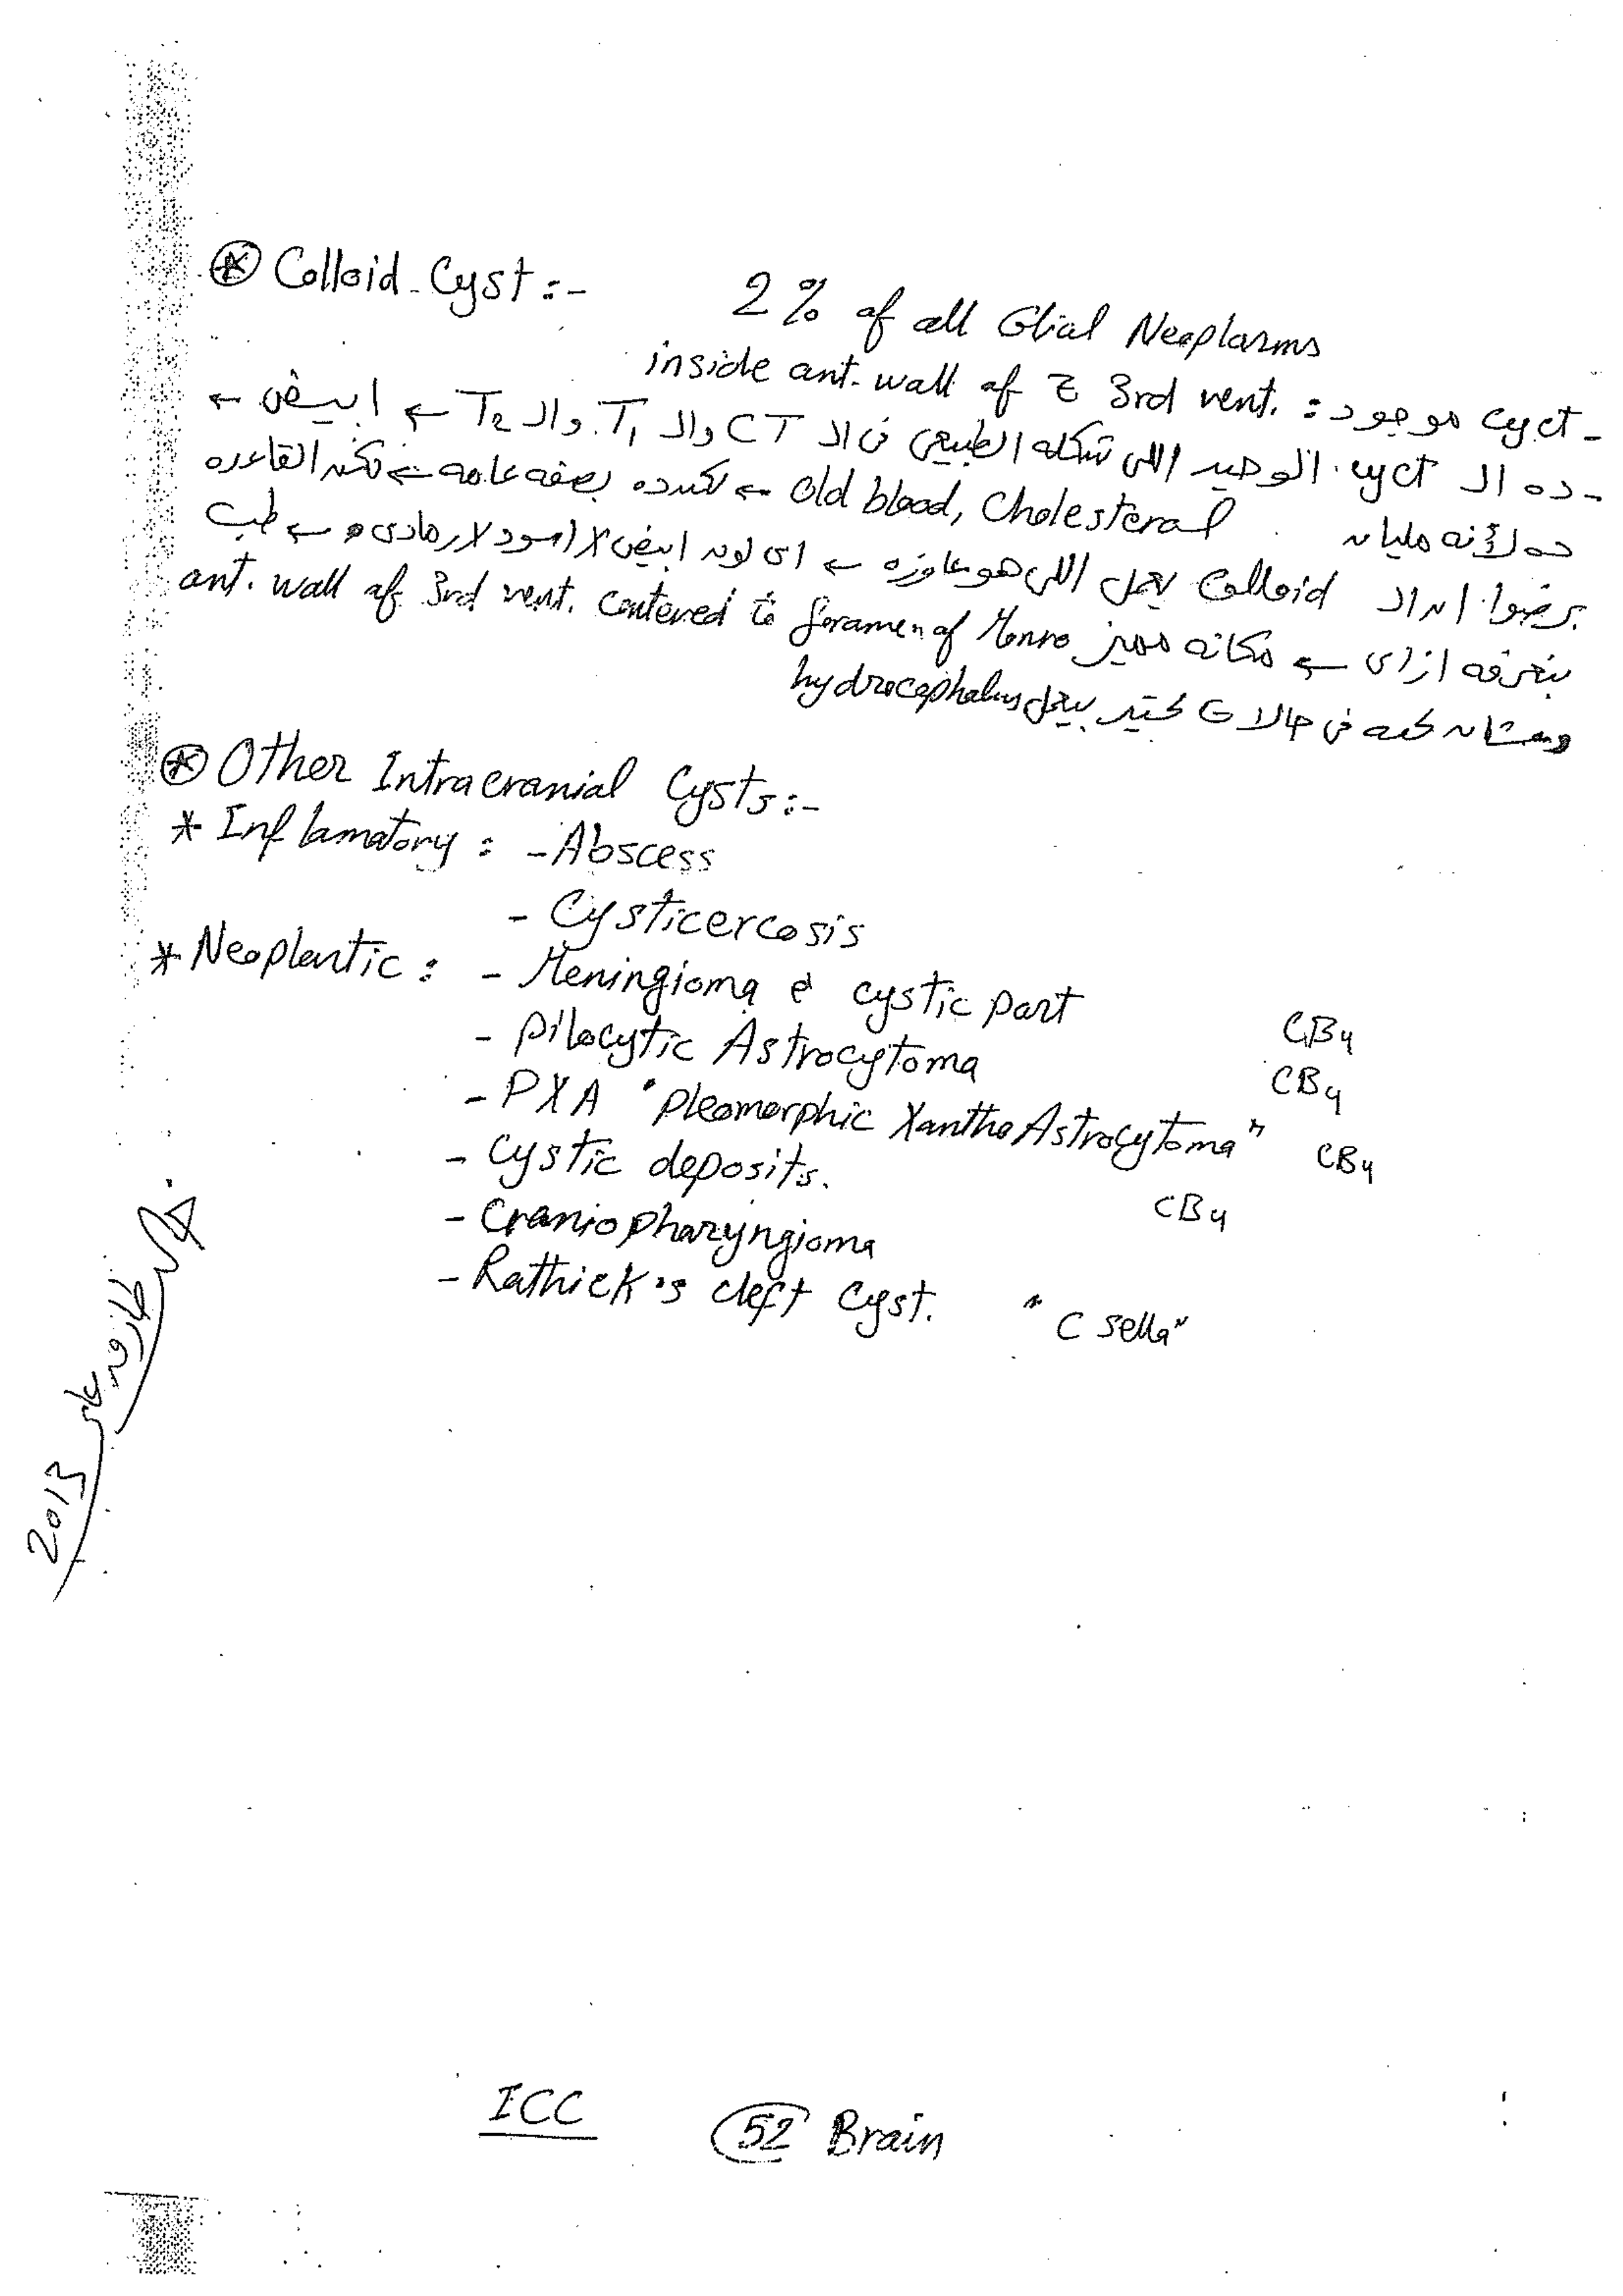 ⊛ Colloid Cyst :-
2 % of all Glial Neoplasms
- cyct موجود : inside ant. wall of ē 3rd vent.
- ده الـ cyct الوحيد اللي شكله الطبيعي في الـ CT والـ T1 والـ T2 ← ابيض ←
ده لأنه مليان Old blood, Cholesterol ← لكن ده بصفه عامه ← لكن القاعده
برضوا ان الـ Colloid يعمل اللي هو عاوزه ← اى لون ابيض X اسود X رمادى ← طب
بنعرفه ازاى ← مكانه مميز ant. wall of 3rd vent. centered to foramen of Monro
ومشان كده في حالات كتير بيعمل hydrocephalus
⊛ Other Intracranial Cysts :-
* Inflamatory : - Abscess
- Cysticercosis
* Neoplantic : - Meningioma ē cystic part
- Pilocytic Astrocytoma CB4
- PXA "Pleomorphic XanthoAstrocytoma" CB4
- Cystic deposits. CB4
- Craniopharyngioma CB4
- Rathick's cleft Cyst. "C sella"
2013
ICC
52 Brain